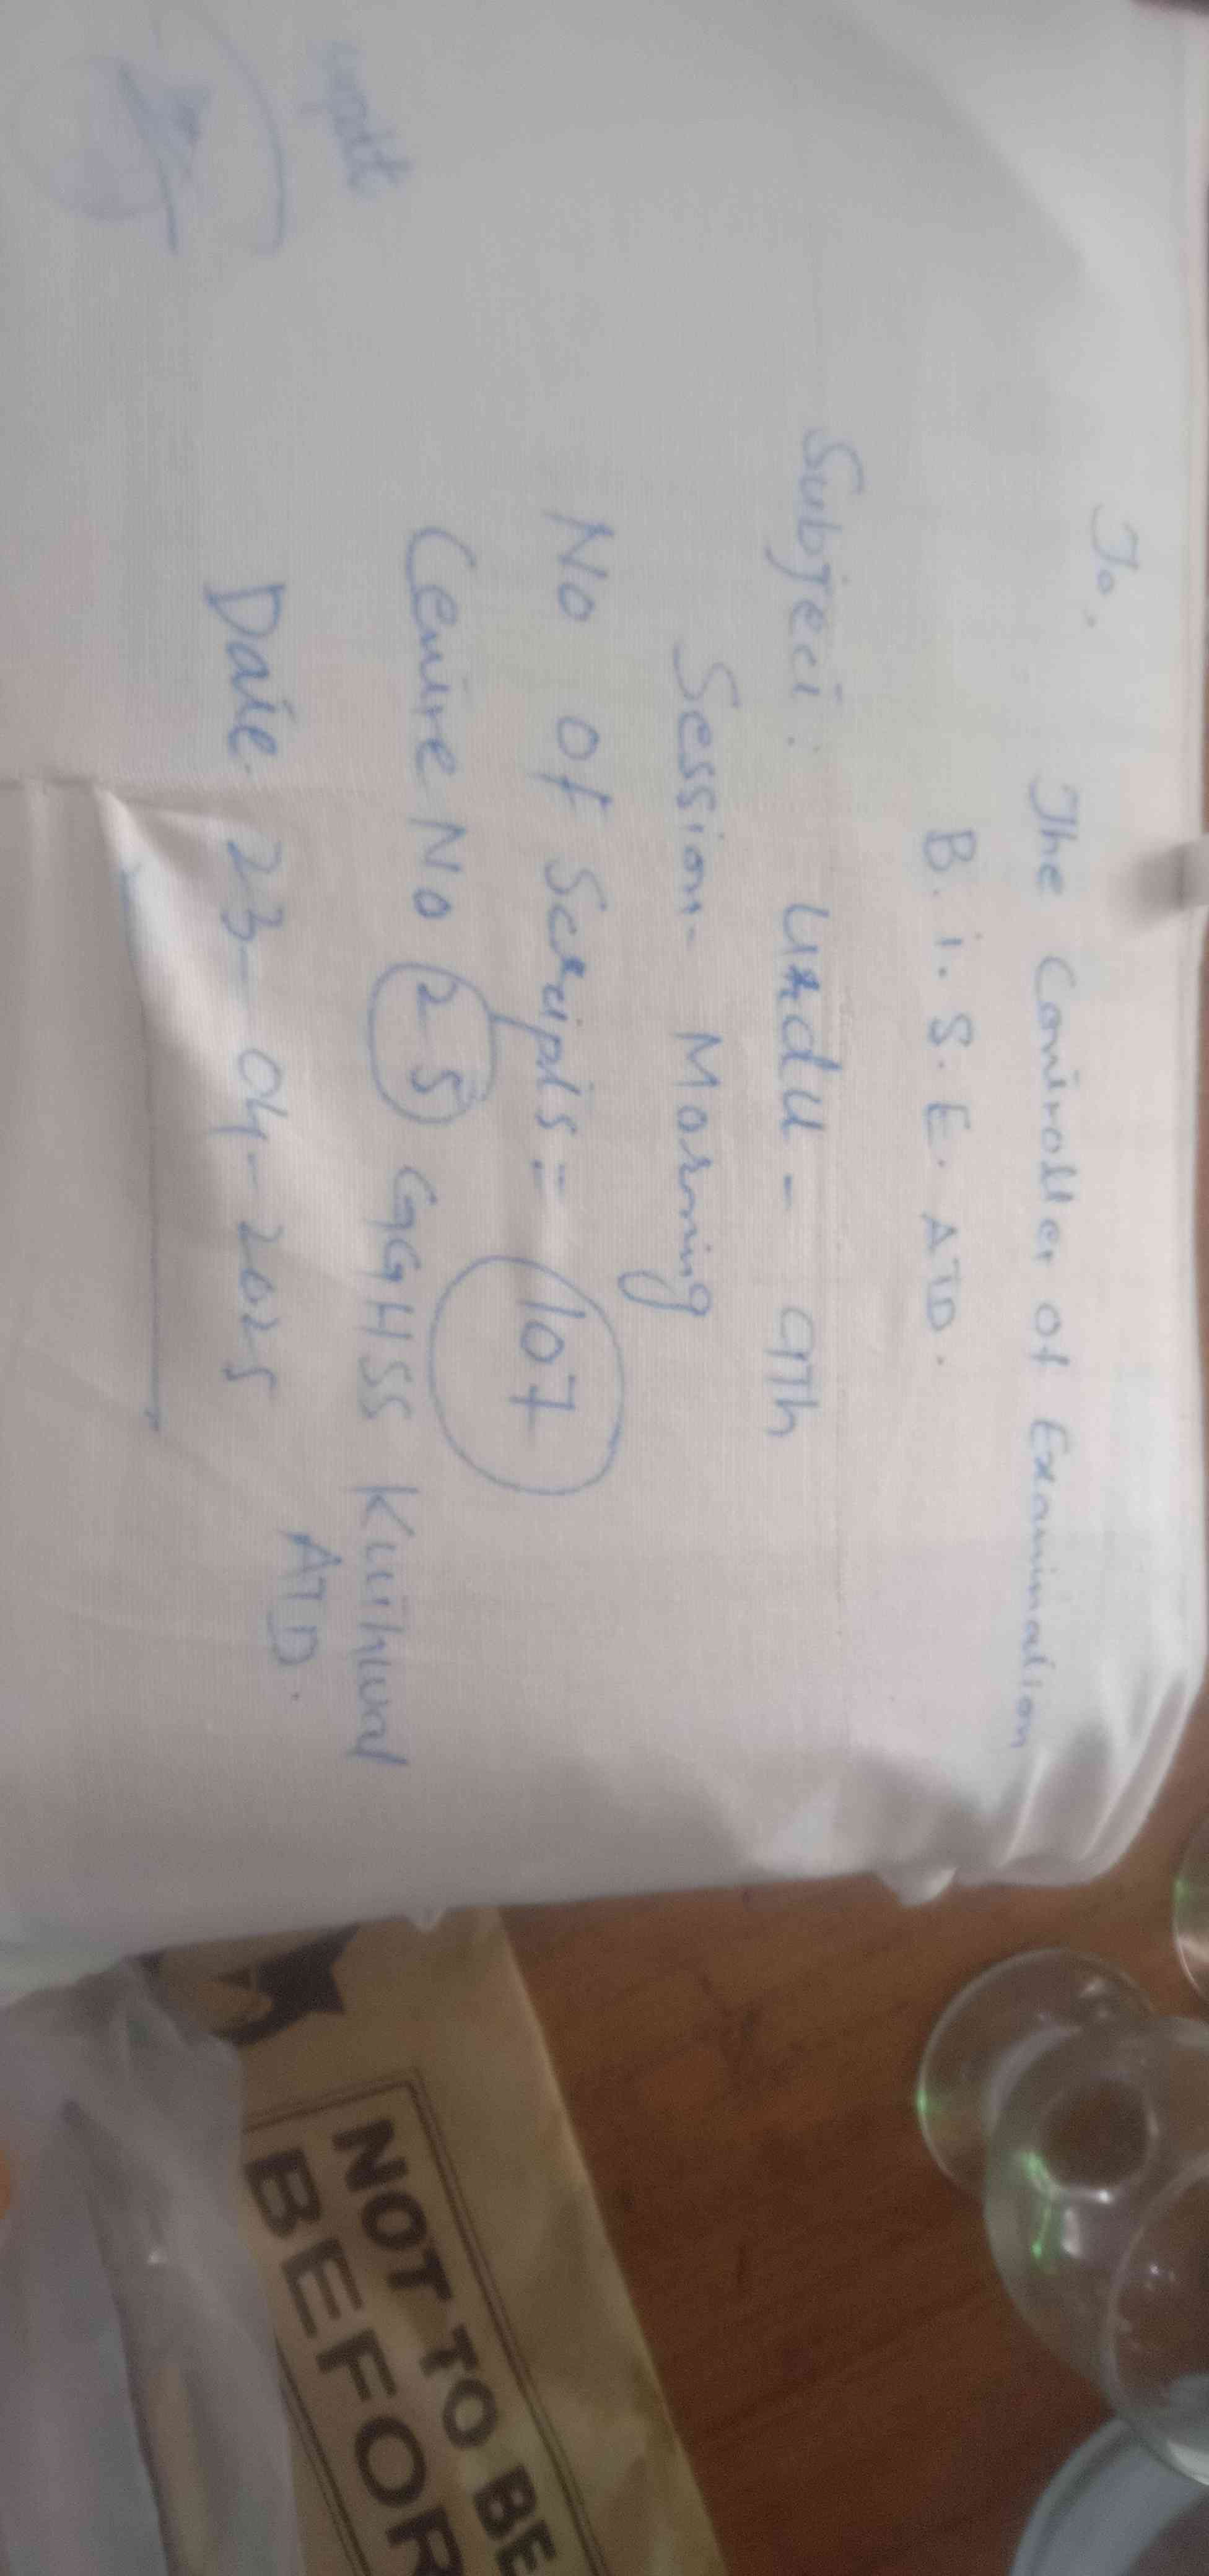 To,
The Controller of Examination
B. I. S. E. ATD.
Subject: Urdu - 9Th
Session - Morning
No Of Scripts = 107
Centre No 25 GGHSS Kuthwal
ATD.
Date. 23-04-2025
NOT TO BE
BEFOR